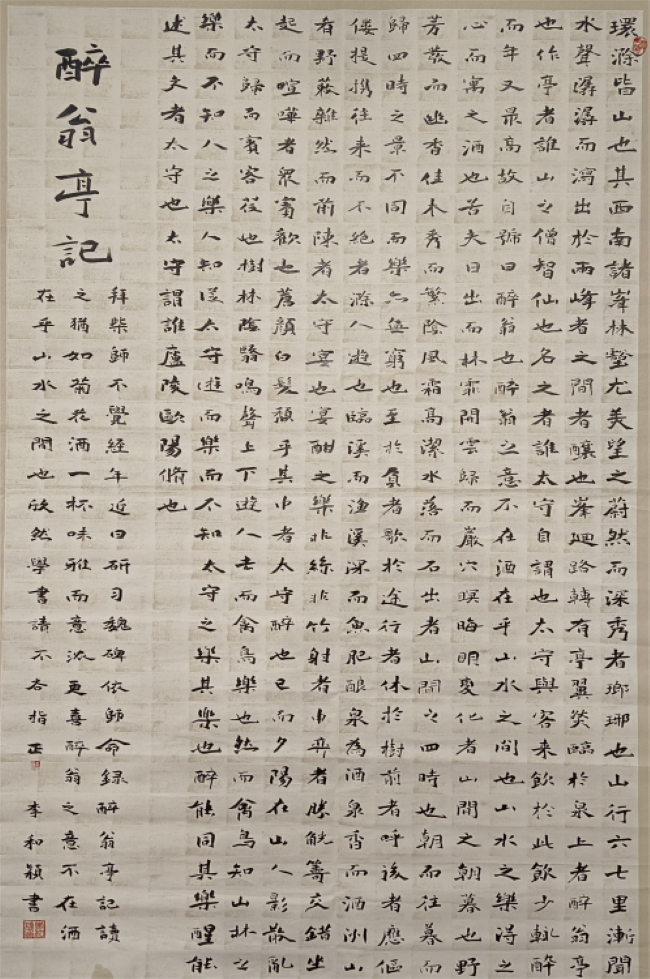 環滁皆山也其西南諸峯林壑尤美望之蔚然而深秀者瑯琊也山行六七里漸聞
水聲潺潺而瀉出於兩峰者之間者釀也峯迴路轉有亭翼然臨於泉上者醉翁亭
也作亭者誰山之僧智仙也名之者誰太守自謂也太守與客來飲於此飲少輒醉
而年又最高故自號曰醉翁也醉翁之意不在酒在乎山水之間也山水之樂得之
心而寓之酒也若夫日出而林霏開雲歸而巖穴暝晦明變化者山間之朝暮也野
芳發而幽香佳木秀而繁陰風霜高潔水落而石出者山間之四時也朝而往暮而
歸四時之景不同而樂亦無窮也至於負者歌於途行者休於樹前者呼後者應傴
僂提攜往來而不絕者滁人遊也臨溪而漁溪深而魚肥釀泉為酒泉香而酒洌山
肴野蔌雜然而前陳者太守宴也宴酣之樂非絲非竹射者中弈者勝觥籌交錯坐
起而喧嘩者眾賓歡也蒼顏白髮頹乎其中者太守醉也已而夕陽在山人影散亂
太守歸而賓客從也樹林陰翳鳴聲上下遊人去而禽鳥樂也然而禽鳥知山林之
樂而不知人之樂人知從太守遊而樂而不知太守之樂其樂也醉能同其樂醒能
述其文者太守也太守謂誰廬陵歐陽脩也
醉翁亭記
拜柴師不覺經年近日研习魏碑依師命錄醉翁亭記讀
之猶如菊花酒一杯味雅而意濃更喜醉翁之意不在酒
在乎山水之間也欣然學書請不吝指正 李和穎書